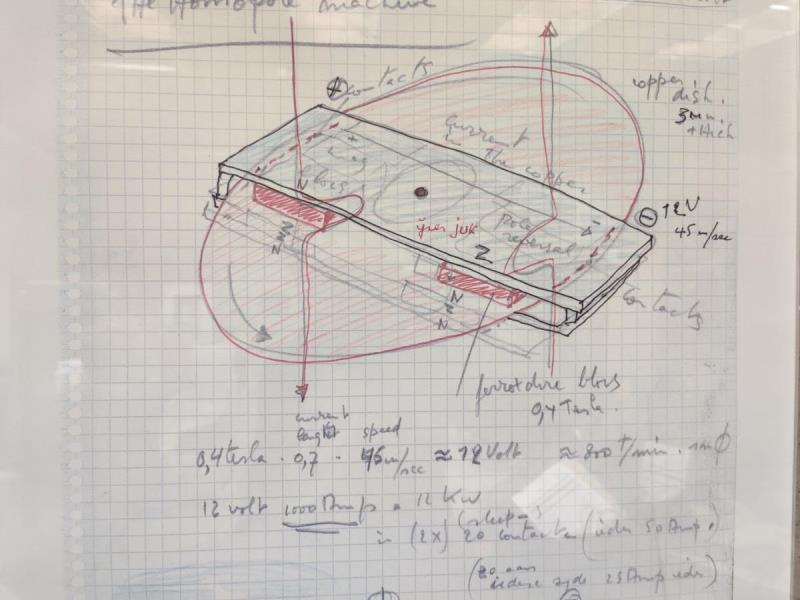 THE Homopole machine
⊕ contacts
copper
dish.
3mm.
Current
in the copper
N
⊖ 12V
45 m/sec
pole
reversal
ijzer juk
Z
N
Z
N
N
Z
N
contacts
ferroxdure blocs
0,4 Tesla.
current
lenght speed
0,4 tesla . 0,7 . 45 m/sec ≈ 12 Volt ≈ 800 t/min.
12 volt 1000 Amp = 12 KW
(sleep-)
in (2x) 20 contacten (ieder 50 Amp.)
(20 aan
iedere zyde 25 Amp ieder)